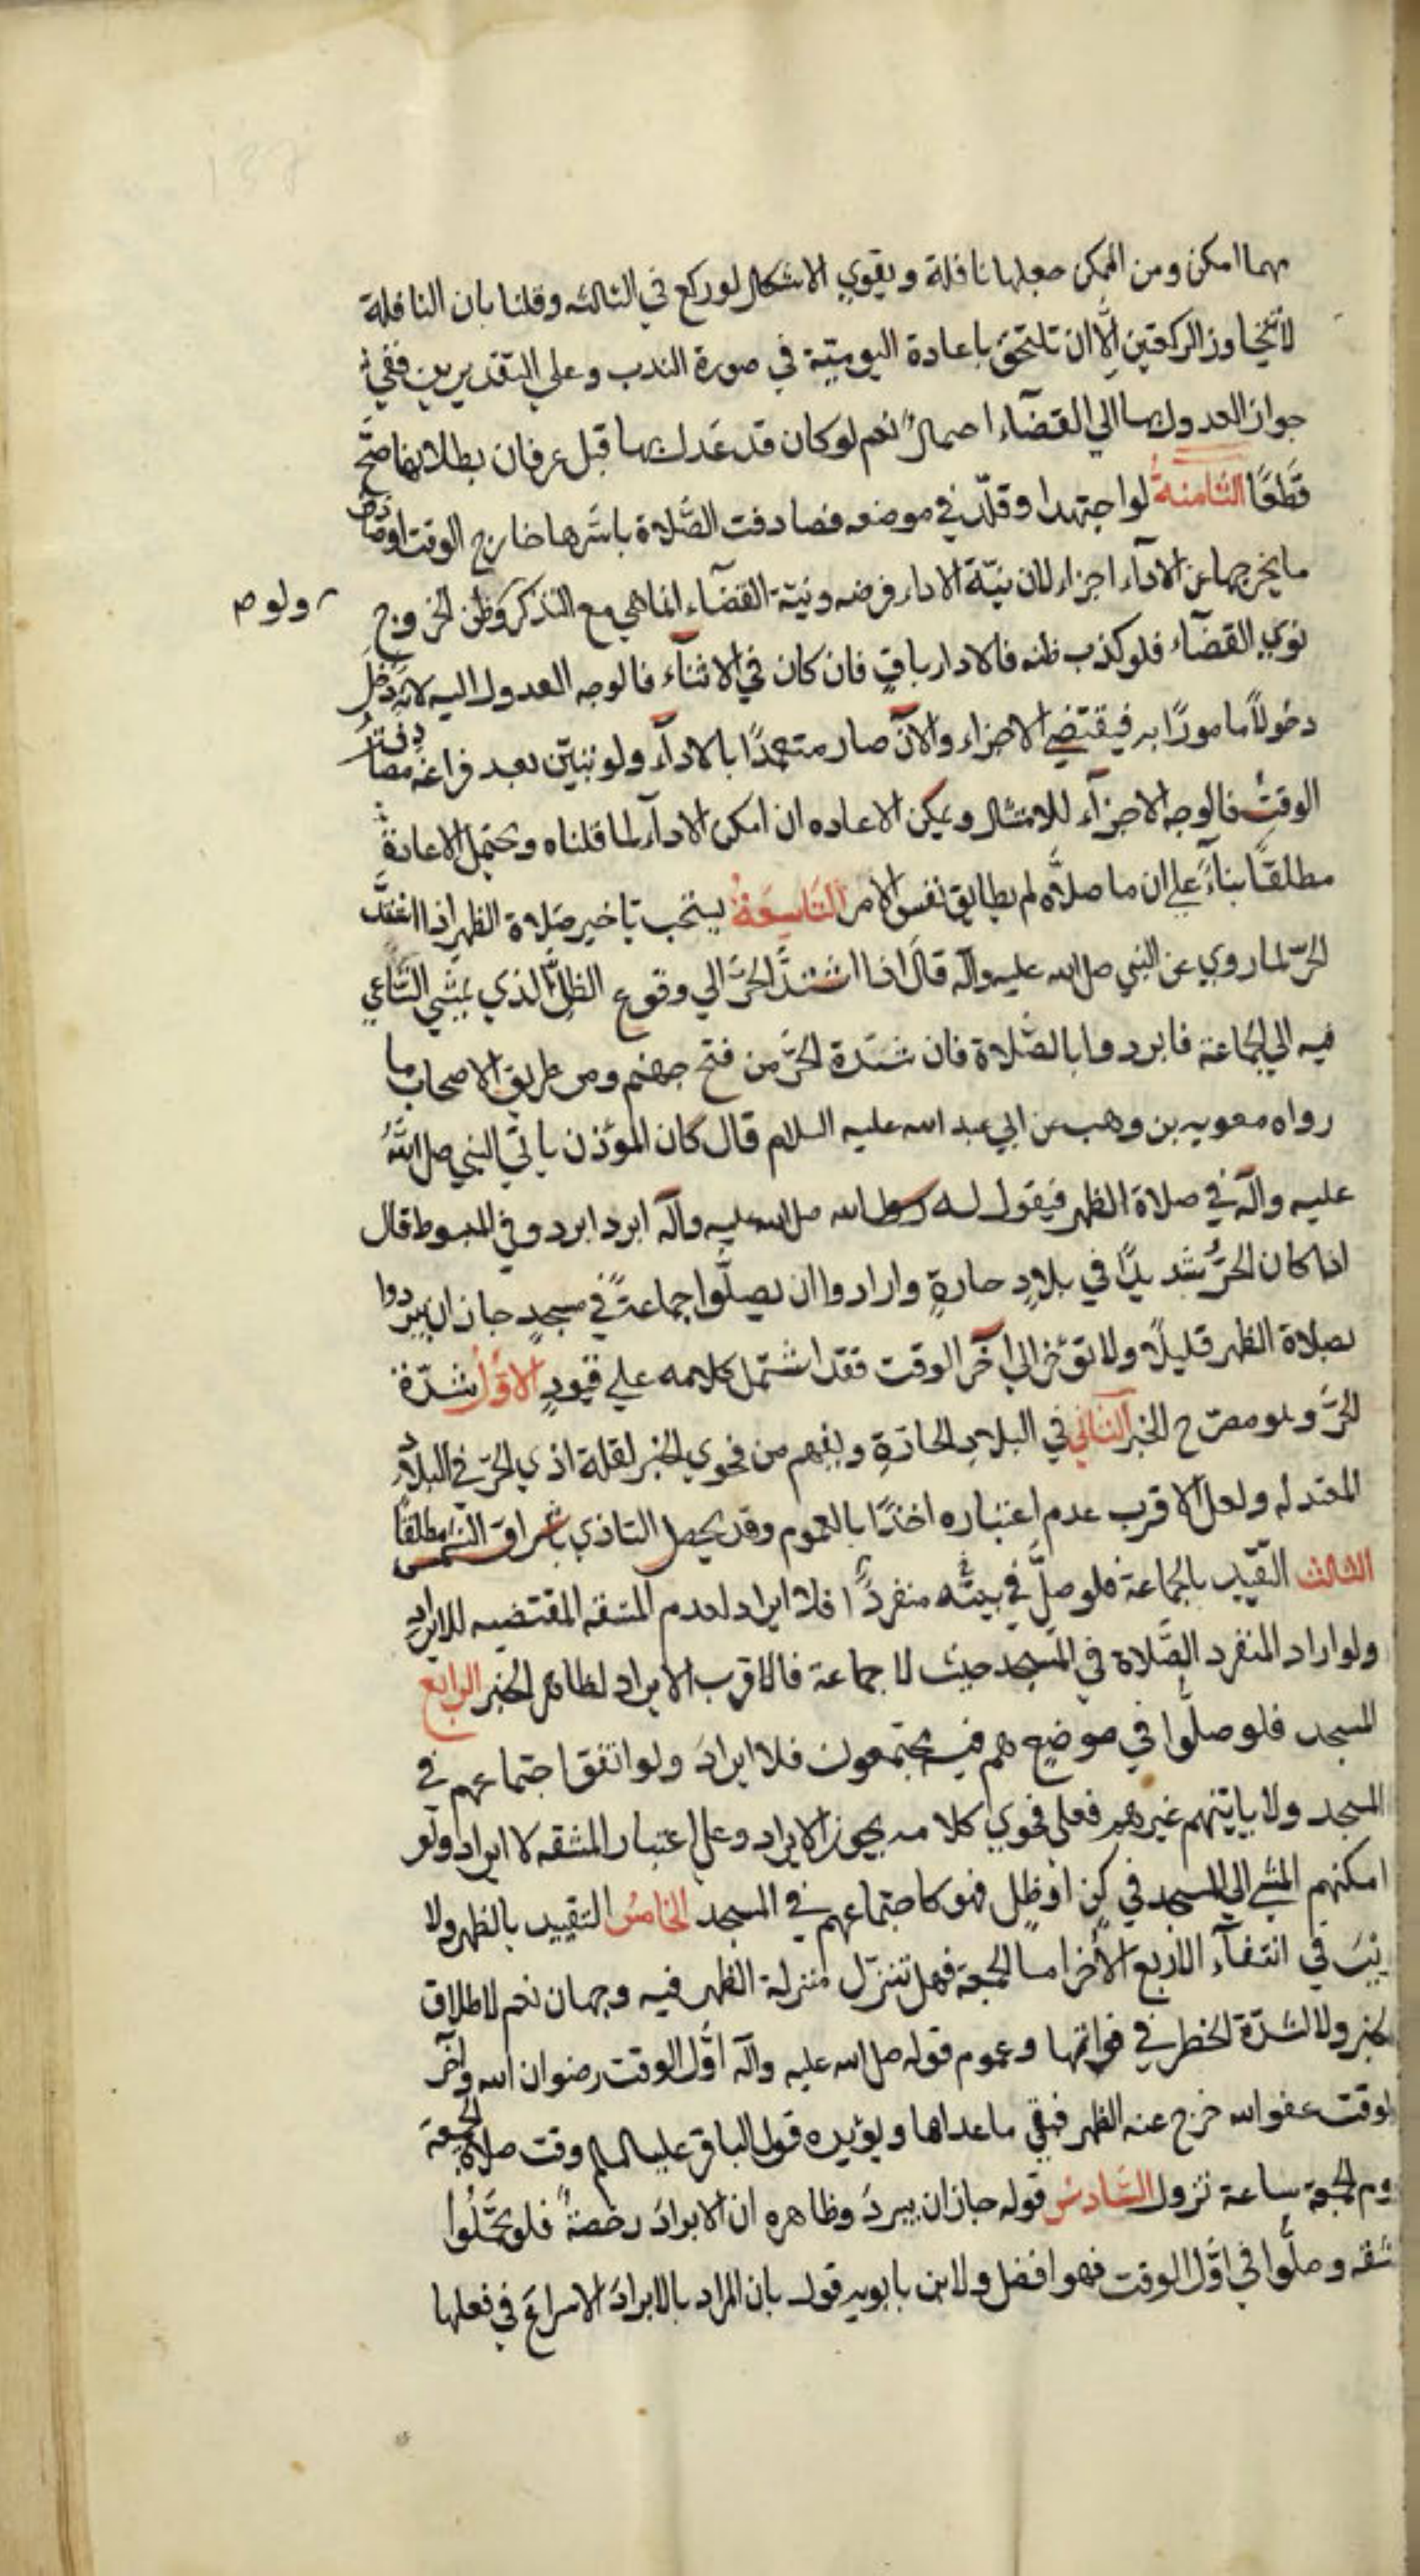 مهما امكن ومن الممكن جعلها نافلة ويقوي الاشكال لو ركع في الثالثه وقلنا بان النافلة
لا تتجاوز الركعتين الّا ان تلتحق باعادة اليوميّة في صورة الندب وعلي التقديرين ففي
جواز العدول بها الي القضآء احتمالٌ نعم لو كان قد عَدل بها قبل عرفان بطلانها صَحّ
قَطعًا الثامنةُ لو اجتهد او قلّد في موضعه فصادفت الصَّلاة باسرها خارج الوقت او صادف
ما يخرجها عن الاداء اجزاء لان نيّة الاداء فرضه ونيّة القضآء انما هي مع التذكر وظن الخروج
ولو
نوي القضآء فلو كذب ظنه فالاداء باقٍ فان كان في الاثنآء فالوجه العدول اليه لانه دَخلَ
دخولاً مامورًا به فيقتضي الاجزاء والآن صار متعبدًا بالادآء ولو تبيّن بعد فراغه مصادفتُ
الوقت فالوجه الاجزآء للامتثال ويمكن الاعاده ان امكن الادآء لما قلناه ويحتمل الاعادة
مطلقًا بنآءً علي ان ما صلاّه لم يطابق نفس الامر التاسعةُ يستحب تاخير صَلاة الظهر اذا اشتدَّ
الحرّ لما روي عن النبي صلى الله عليه وآله قال اذا اشتدَّ الحَرّ الي وقوع الظلّ الذي يمشي السَّاعي
فيه الي الجماعة فابردوا بالصَّلاة فان شدّة الحَرّ من فتح جهنم ومن طريق الاصحاب ما
رواه معويه بن وهب عن ابي عبد الله عليه السلام قال كان المؤذن ياتي النبي صلى اللهُ
عليه وآله في صلاة الظهر فيقول له رسول الله صلى الله عليه وآله ابرد ابرد وفي المبسوط قال
اذا كان الحرُّ شديدًا في بلادٍ حارةٍ وارادوا ان يصلّوا جماعةً في مسجدٍ جاز ان يبردوا
بصلاة الظهر قليلًا ولا تؤخر الي آخر الوقت فقد اشتمل كلامه علي قيودٍ الاوّلُ شدّة
الحَرّ وهو مصرّح الخبر الثاني في البلادِ الحارّةِ ويفهم من فحوي الخبر لقلة اذي الحرّ في البلاد
المعتدله ولعل الاقرب عدم اعتباره اخذًا بالعموم وقد يحصل التاذي باشراق الشمس مطلقًا
الثالث التقييد بالجماعة فلو صلَّى في بيته منفردًا فلا ايراد لعدم المشقه المقتضيه للابراد
ولو اراد المنفرد الصَّلاة في المسجد حيث لا جماعة فالاقرب الابراد لظاهر الخبر الرابع
المسجد فلو صلّوا في موضع هم فيه مجتمعون فلا ابرادَ ولو اتفق اجتماعهم في
المسجد ولا ياتيهم غيرهم فعلي فحوي كلامه يجوز الابراد وعلي اعتبار المشقه لا ابراد ولو
امكنهم المشي الي المسجد في كنٍ او ظلٍ فهو كاجتماعهم في المسجد الخامسُ التقييد بالظهر ولا
ريبَ في انتفآء الاربع الاُخر اما الجمعة فهل تتنزّل منزلة الظهر فيه وجهان نعم لاطلاق
الخبر ولا لشدّة الخطر في فواتها وعموم قوله صلى الله عليه وآله اوّل الوقت رضوان الله وآخر
الوقت عفو الله خرج عنه الظهر فبقي ما عداها ويؤيده قول الباقر عليه السلام وقت صلاة الجمعة
يوم الجمعة ساعة تزول السَّادسُ قوله جاز ان يبردَ وظاهره ان الابرادَ رخصةٌ فلو تحمّلُوا
المشقه وصلّوا في اوَّل الوقت فهو افضل ولابن بابويه قول بان المراد بالابراد الاسراعَ في فعلها